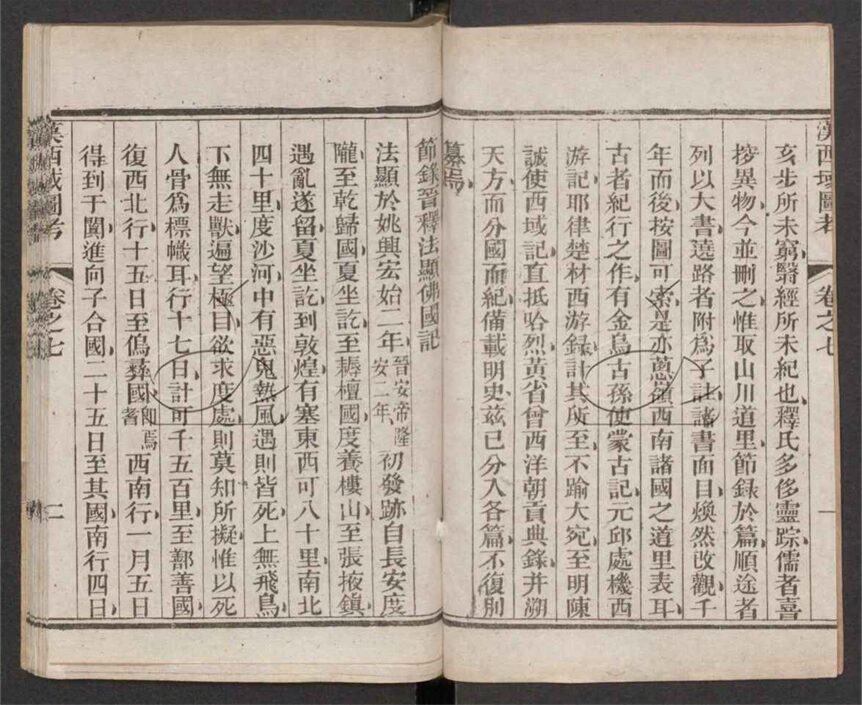 漢西域圖考 卷之七 一
亥步所未窮翳經所未紀也釋氏多侈靈踪儒者喜
搜異物今並刪之惟取山川道里節錄於篇順途者
列以大書遶路者附為子註諸書面目煥然改觀千
年而後按圖可索是亦蔥嶺西南諸國之道里表耳
古者紀行之作有金烏古孫使蒙古記元邱處機西
游記耶律楚材西游錄計其所至不踰大宛至明陳
誠使西域記直抵哈烈黃省曾西洋朝貢典錄并溯
天方而分國而紀備載明史茲已分入各篇不復別
纂焉
節錄晉釋法顯佛國記
法顯於姚興宏始二年晉安帝隆安二年初發跡自長安度
隴至乾歸國夏坐訖至耨檀國度養樓山至張掖鎮
遇亂遂留夏坐訖到敦煌有塞東西可八十里南北
四十里度沙河中有惡鬼熱風遇則皆死上無飛鳥
下無走獸遍望極目欲求度處則莫知所擬惟以死
人骨為標幟耳行十七日計可千五百里至鄯善國
復西北行十五日至㑄彝國卽焉耆西南行一月五日
得到于闐進向子合國二十五日至其國南行四日
漢西域圖考 卷之七 二